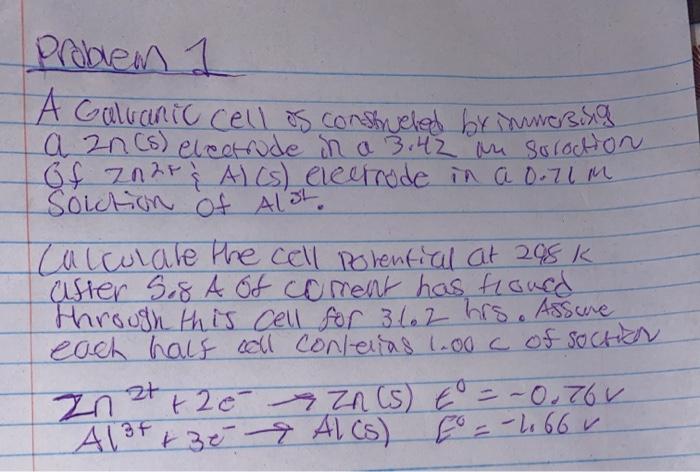 Problem 1
A Galvanic cell is constructed by immersing
a Zn(s) electrode in a 3.42 M solution
of Zn²⁺ & Al(s) electrode in a 0.71 M
Solution of Al³⁺.
Calculate the cell potential at 298 K
after 5.8 A of current has flowed
through this cell for 31.2 hrs. Assume
each half cell contains 1.00 L of solution
Zn²⁺ + 2e⁻ → Zn(s) E⁰ = -0.76 V
Al³⁺ + 3e⁻ → Al(s) E⁰ = -1.66 V